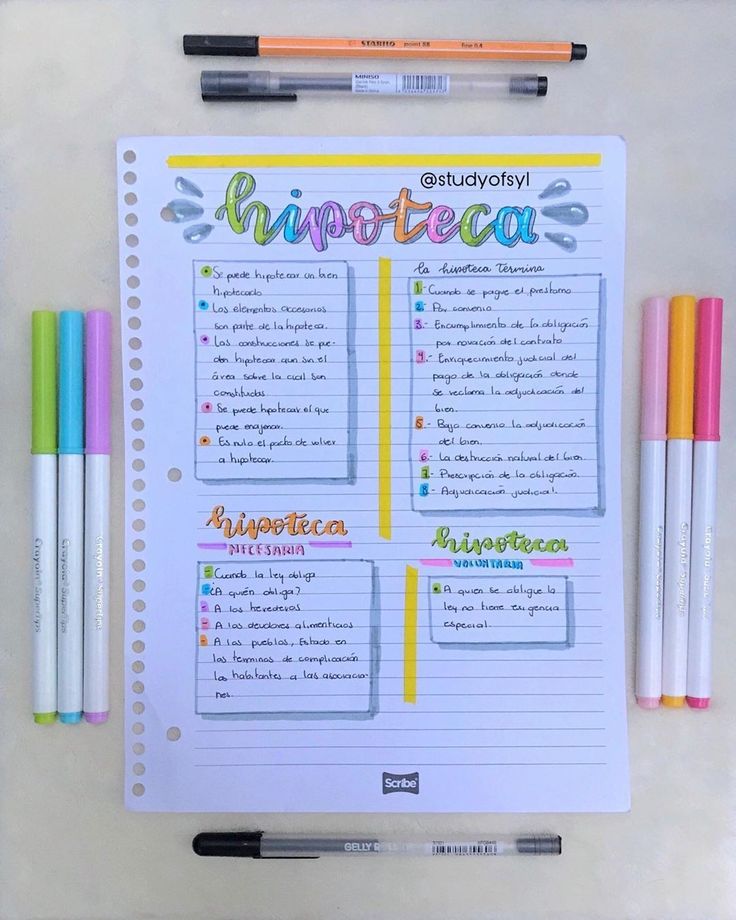 STABILO point 88 fine 0.4
MINISO
@studyofsyl
hipoteca
Se puede hipotecar un bien
hipotecado
Los elementos accesorios
son parte de la hipoteca.
Las construcciones se pue-
den hipotecar aun sin el
área sobre la cual son
constituidas
Se puede hipotecar el que
puede enajenar.
Es nulo el pacto de volver
a hipotecar.
la hipoteca termina
1.- Cuando se pague el prestamo
2.- Por convenio
3.- Encumplimiento de la obligación
por novación del contrato
4.- Enriquecimiento judicial del
pago de la obligación donde
se reclama la adjudicación del
bien.
5.- Bajo convenio la adjudicación
del bien.
6.- La destrucción natural del bien.
7.- Prescripción de la obligación.
8.- Adjudicación judicial.
hipoteca
NECESARIA
- Cuando la ley obliga
- ¿A quién obliga?
- A los herederos
- A los deudores alimenticios
- A los pueblos, Estado en
los terminos de complicación
los habitantes a las asociacio-
nes.
hipoteca
VOLUNTARIA
A quien se obligue la
ley no tiene exigencia
especial.
Scribe
Crayola SuperTips
Crayola SuperTips
Crayola SuperTips
Crayola SuperTips
Crayola SuperTips
Crayola
GELLY